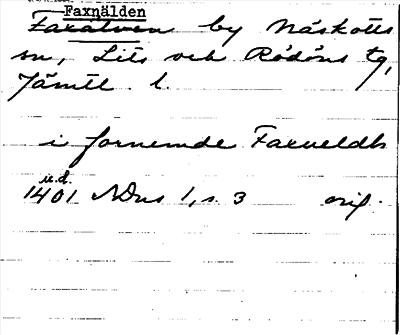 Faxnälden
Faxälven by Näskotts
sn, Lits och Rödöns tg,
Jämtl. l.
i fornemde Faxueldh
u.d.
1401 NDns 1, s. 3 orig.